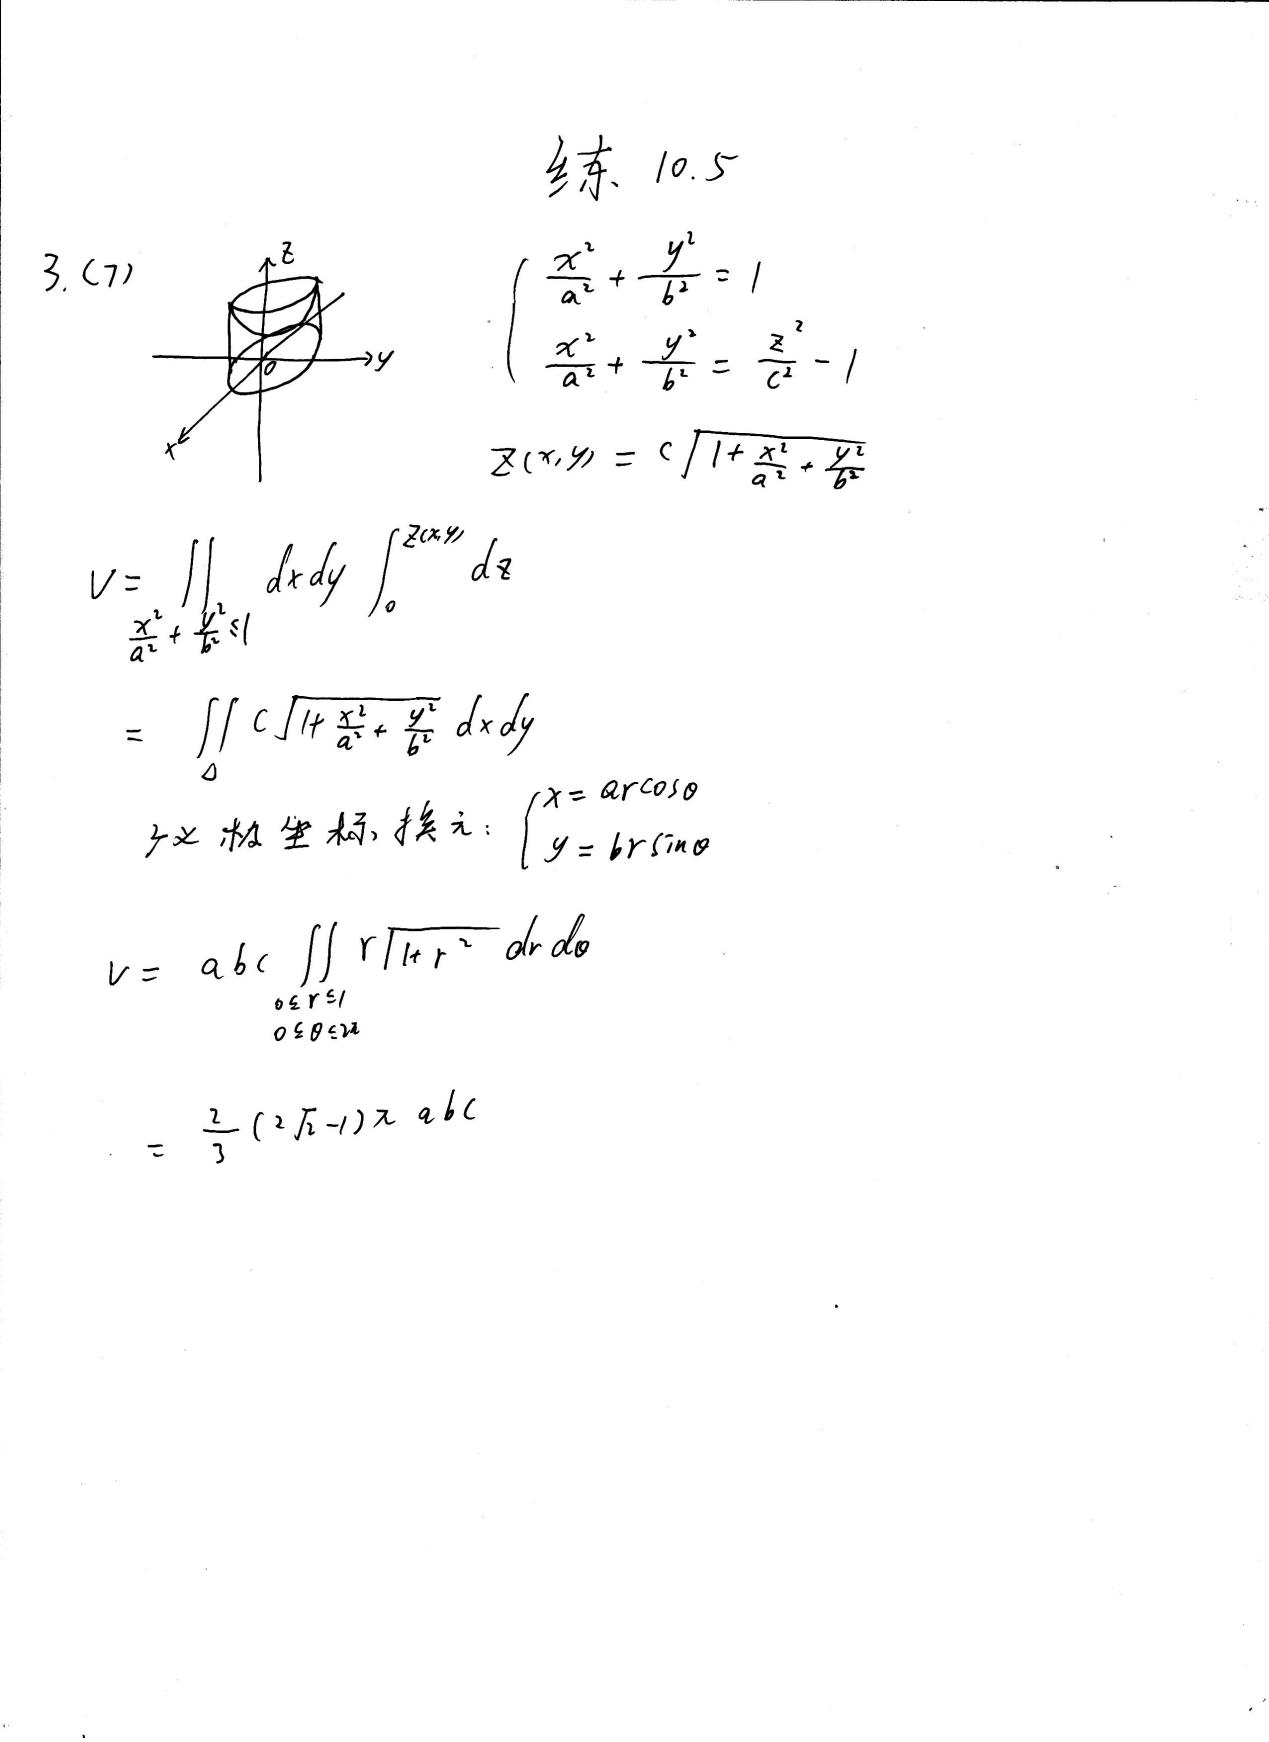 练 10.5
3.(7)
z
y
o
x
x²/a² + y²/b² = 1
x²/a² + y²/b² = z²/c² - 1
z(x,y) = c√(1 + x²/a² + y²/b²)
V = ∬_{x²/a² + y²/b² ≤ 1} dxdy ∫_0^{z(x,y)} dz
= ∬_Δ c√(1 + x²/a² + y²/b²) dxdy
广义极坐标换元: { x = arcosθ
y = brsinθ
V = abc ∬_{0≤r≤1, 0≤θ≤2π} r√(1+r²) dr dθ
= 2/3 (2√2 - 1)π abc